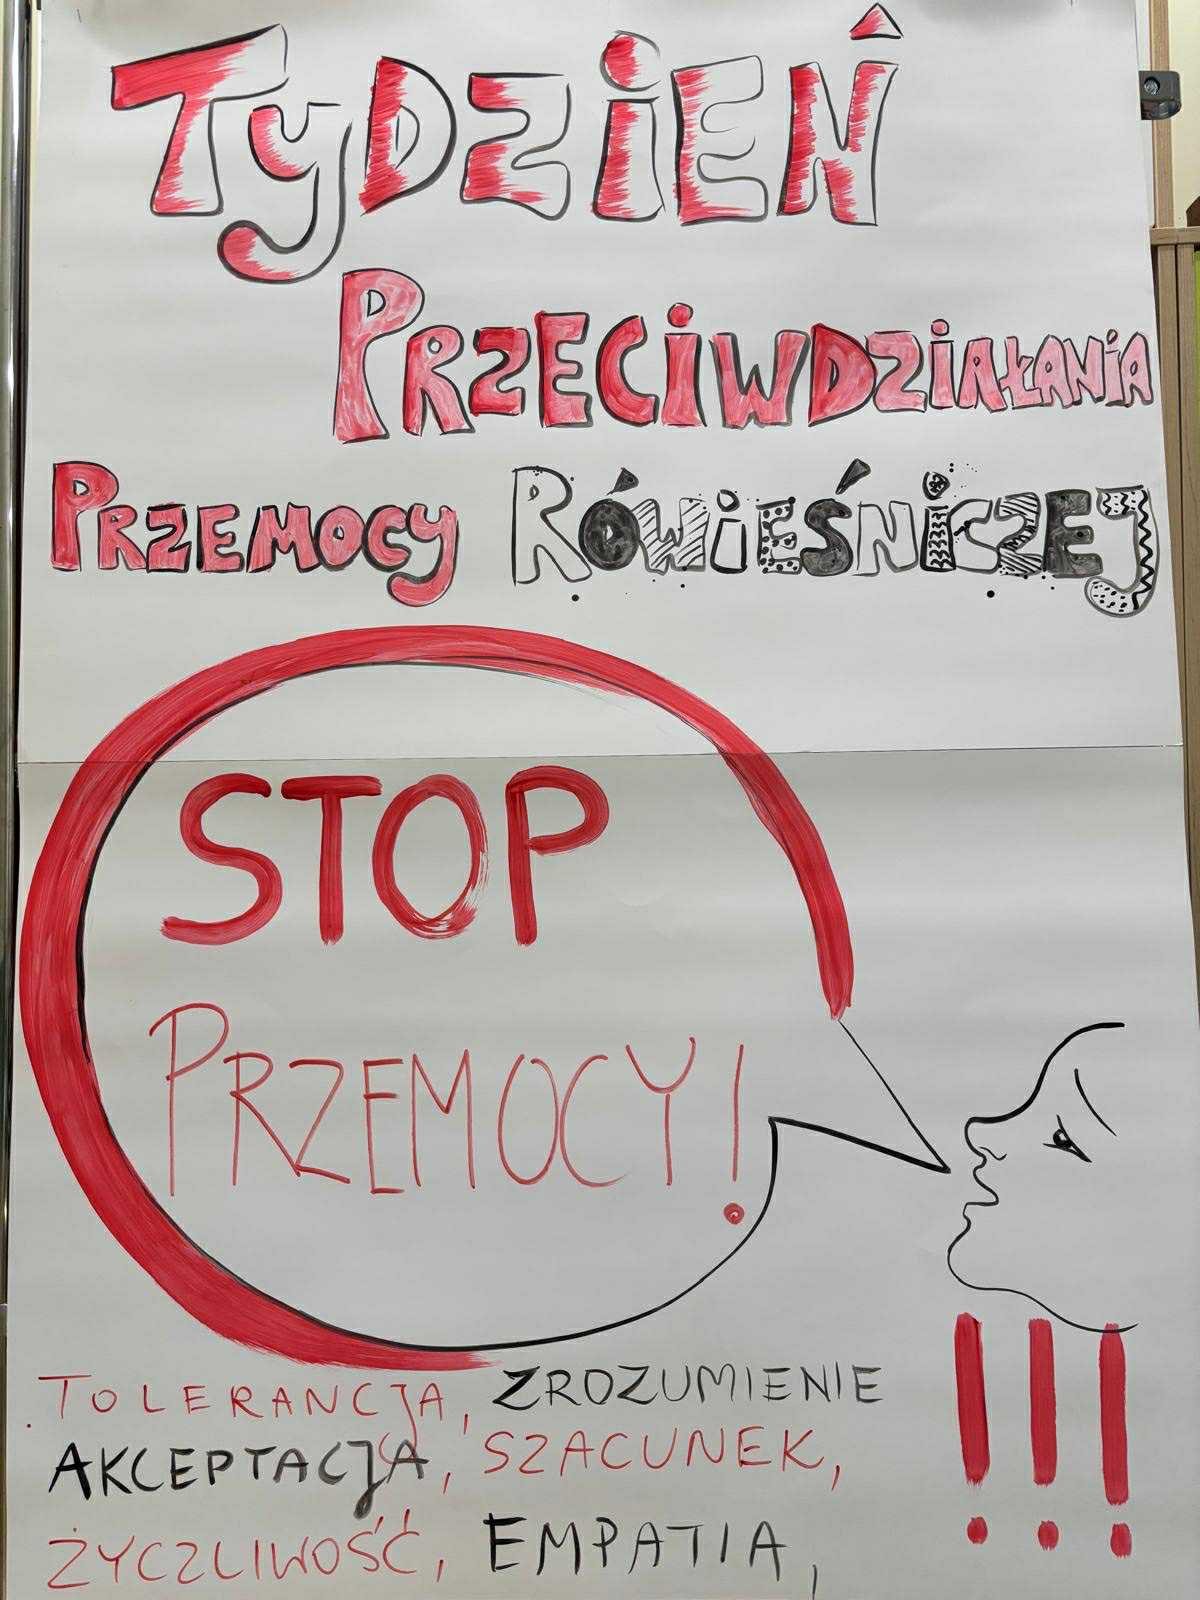 TyDZiEŃ
PRZECiWDZiAŁANiA
PRZEMOCY RÓWiEŚNiCZEJ
STOP
PRZEMOCY!
TOLERANCJA, ZROZUMIENIE
AKCEPTACJA, SZACUNEK,
ŻYCZLIWOŚĆ, EMPATIA,
!!!